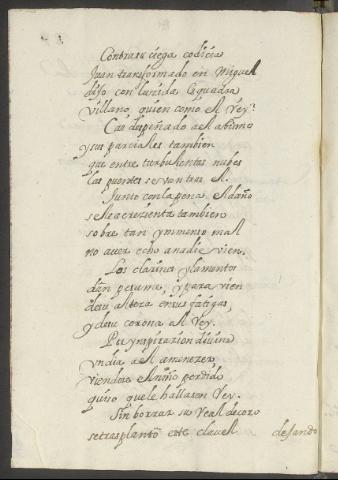 Contra su ciega codicia
Juan transformado en Miguel
dijo con lucida esquadra
villano, quien como el Rey?
Caè despeñado al abismo
y sus parciales tambien
que entre turbulentas nubes
las puertas se van tras el.
Junto con la pena el daño
se le acrecienta tambien
sobre tan ynmenso mal
no aver echo a nadie vien.
Los clarines y lamentos
den para vien
de su alteza en sus fatigas,
y de su corona al Rey.
Por ynspiracion divina
vn dia al amanezer
viendose el niño perdido
quiso que le hallasen Rey.
Sin borrar su real decoro
se trasplantò este clavel
dejando